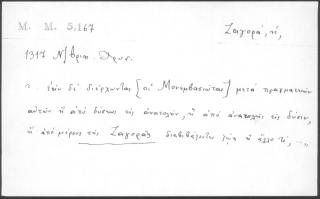 M. M. 5,167
Ζαγορά, ἡ,
1317 Ν/βριο
". ἐὰν δὲ διέρχωνται [οἱ Μονεμβασιῶται] μετὰ πραγματειῶν
αὐτῶν ἢ ἀπὸ δύσεως εἰς ἀνατολήν, ἢ ἀπὸ ἀνατολῆς εἰς δύσιν,
ἢ ἀπὸ μέρους τῆς Ζαγορᾶς διαβιβάζωσι ζῷα ἢ ἄλλο τι, ..."